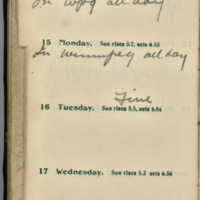 In Wpg all day
15 Monday. Sun rises 5.7, sets 6.53
In Winnipeg all day
16 Tuesday. Sun rises 5.5, sets 6.54
Fine
17 Wednesday. Sun rises 5.3 sets 6.56